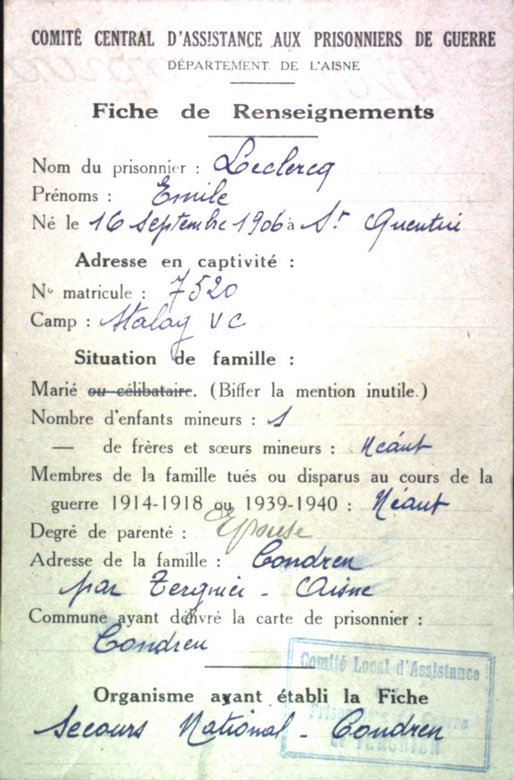 COMITÉ CENTRAL D'ASSISTANCE AUX PRISONNIERS DE GUERRE
DÉPARTEMENT DE L'AISNE
Fiche de Renseignements
Nom du prisonnier : Leclercq
Prénoms : Emile
Né le 16 Septembre 1906 à St Quentin
Adresse en captivité :
No matricule : 7520
Camp : Stalag VC
Situation de famille :
Marié ou célibataire. (Biffer la mention inutile.)
Nombre d'enfants mineurs : 1
— de frères et sœurs mineurs : Néant
Membres de la famille tués ou disparus au cours de la
guerre 1914-1918 ou 1939-1940 : Néant
Degré de parenté : Epouse
Adresse de la famille : Condren
par Tergnier - Aisne
Commune ayant délivré la carte de prisonnier :
Condren
Comité Local d'Assistance
Prisonniers de Guerre
de TERGNIER
Organisme ayant établi la Fiche
Secours National - Condren